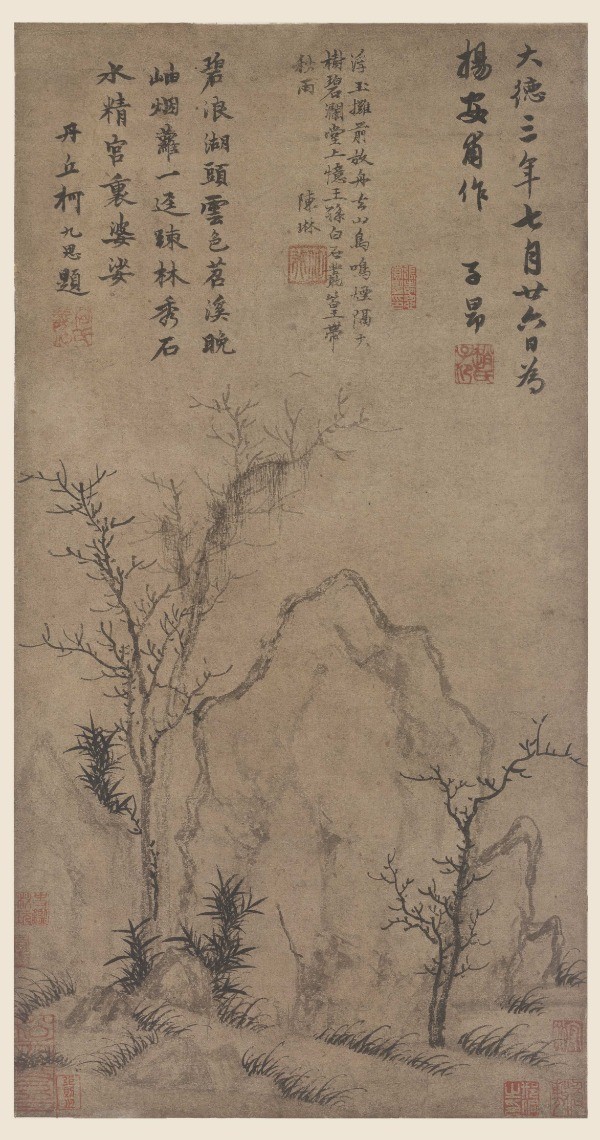 大德三年七月廿六日為
楊安甫作　子昂
浮玉攤前放舟去山鳥鳴煙隔大
樹碧瀾堂上憶王孫白石叢篁帶
秋雨　陳琳
碧浪湖頭雲色茗溪晚
岫烟蘿一逕踈林秀石
水精宮裏婆娑
丹丘柯九思題